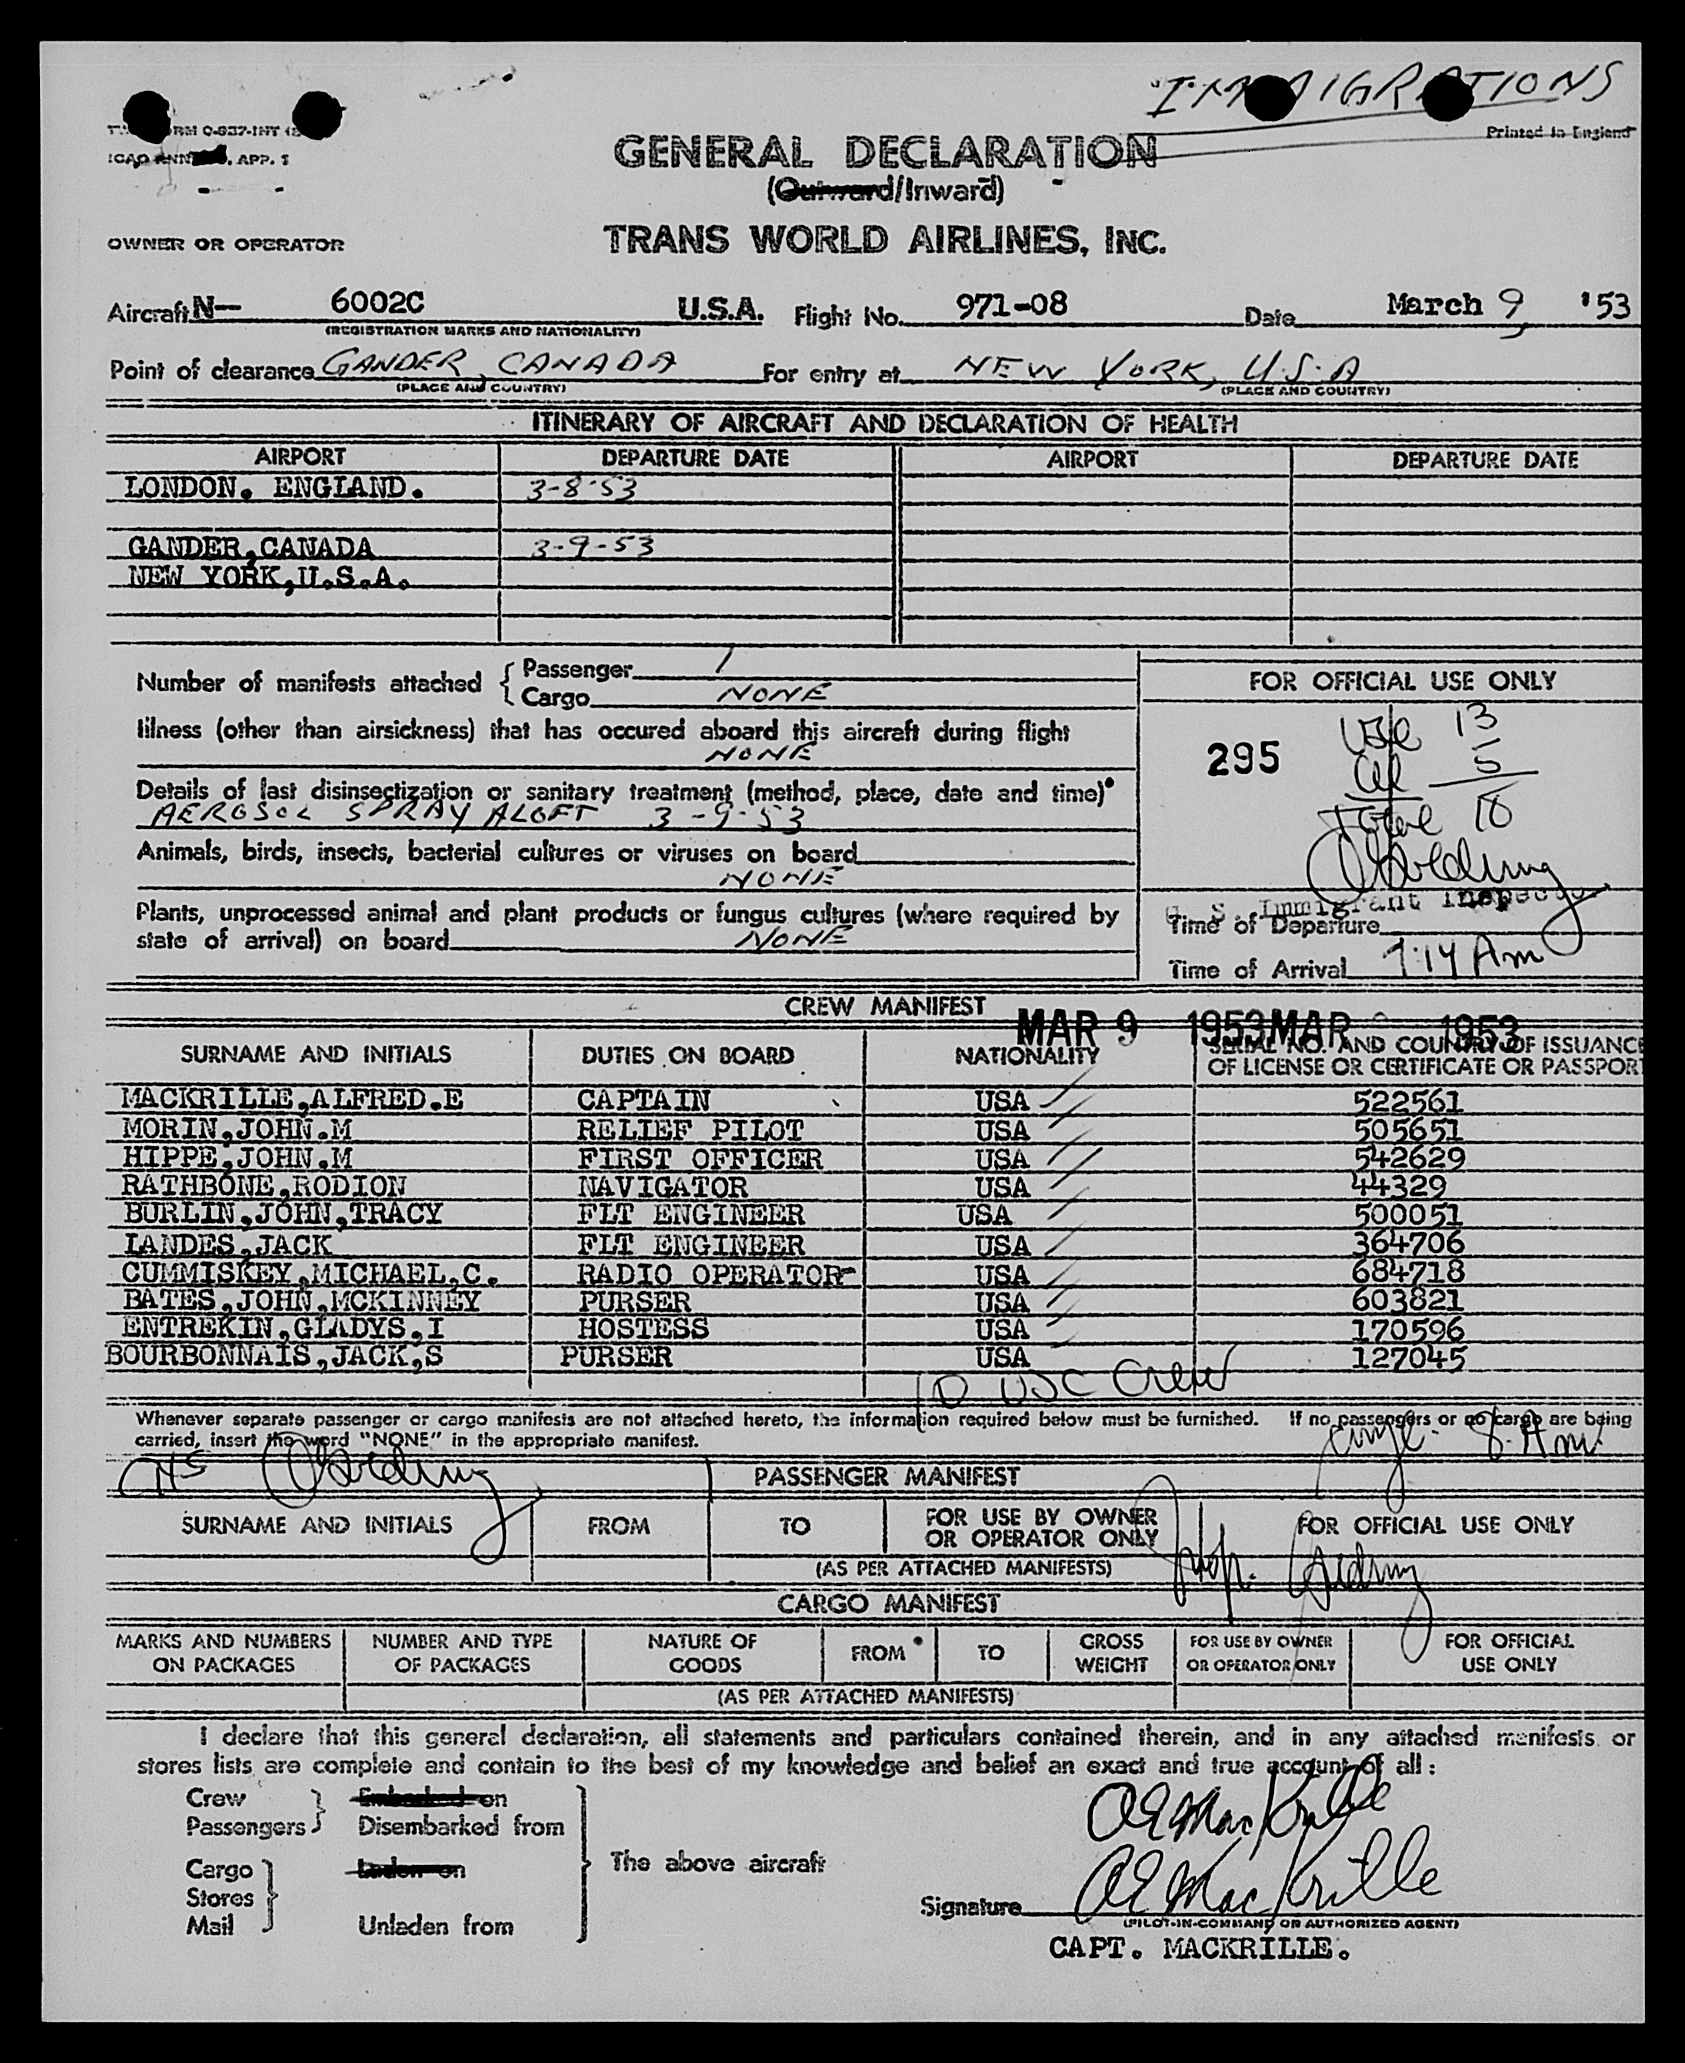 IMMIGRATIONS
Printed in England
ICAO ANNEX 9, APP. 1
GENERAL DECLARATION
(Outward/Inward)
OWNER OR OPERATOR TRANS WORLD AIRLINES, INC.
Aircraft N— 6002C U.S.A. Flight No. 971-08 Date March 9, '53
(REGISTRATION MARKS AND NATIONALITY)
Point of clearance GANDER, CANADA For entry at NEW YORK, U.S.A
(PLACE AND COUNTRY) (PLACE AND COUNTRY)
ITINERARY OF AIRCRAFT AND DECLARATION OF HEALTH
AIRPORT DEPARTURE DATE AIRPORT DEPARTURE DATE
LONDON. ENGLAND. 3-8-53
GANDER,CANADA 3-9-53
NEW YORK,U.S.A.
Number of manifests attached { Passenger 1
Cargo NONE
FOR OFFICIAL USE ONLY
Illness (other than airsickness) that has occured aboard this aircraft during flight
NONE
295
USC 13
Al 5
Total 18
Details of last disinsectization or sanitary treatment (method, place, date and time)
AEROSOL SPRAY ALOFT 3-9-53
Animals, birds, insects, bacterial cultures or viruses on board
NONE
U. S. Immigrant Inspector
Plants, unprocessed animal and plant products or fungus cultures (where required by
state of arrival) on board NONE
Time of Departure
Time of Arrival 7:14 Am
CREW MANIFEST
MAR 9 1953 MAR 9 1953
SURNAME AND INITIALS DUTIES ON BOARD NATIONALITY SERIAL NO. AND COUNTRY OF ISSUANCE
OF LICENSE OR CERTIFICATE OR PASSPORT
MACKRILLE,ALFRED.E CAPTAIN USA 522561
MORIN,JOHN.M RELIEF PILOT USA 505651
HIPPE,JOHN.M FIRST OFFICER USA 542629
RATHBONE,RODION NAVIGATOR USA 44329
BURLIN,JOHN,TRACY FLT ENGINEER USA 500051
LANDES,JACK FLT ENGINEER USA 364706
CUMMISKEY,MICHAEL,C. RADIO OPERATOR USA 684718
BATES,JOHN,MCKINNEY PURSER USA 603821
ENTREKIN,GLADYS,I HOSTESS USA 170596
BOURBONNAIS,JACK,S PURSER USA 127045
10 USC Crew
Whenever separate passenger or cargo manifests are not attached hereto, the information required below must be furnished. If no passengers or no cargo are being
carried, insert the word "NONE" in the appropriate manifest.
8 Am
PASSENGER MANIFEST
SURNAME AND INITIALS FROM TO FOR USE BY OWNER
OR OPERATOR ONLY FOR OFFICIAL USE ONLY
(AS PER ATTACHED MANIFESTS)
CARGO MANIFEST
MARKS AND NUMBERS
ON PACKAGES NUMBER AND TYPE
OF PACKAGES NATURE OF
GOODS FROM TO GROSS
WEIGHT FOR USE BY OWNER
OR OPERATOR ONLY FOR OFFICIAL
USE ONLY
(AS PER ATTACHED MANIFESTS)
I declare that this general declaration, all statements and particulars contained therein, and in any attached manifests or
stores lists are complete and contain to the best of my knowledge and belief an exact and true account of all :
Crew Embarked on
Passengers Disembarked from
Cargo Laden on The above aircraft
Stores
Mail Unladen from
AE MacKrille
Signature AE MacKrille
(PILOT-IN-COMMAND OR AUTHORIZED AGENT)
CAPT. MACKRILLE.